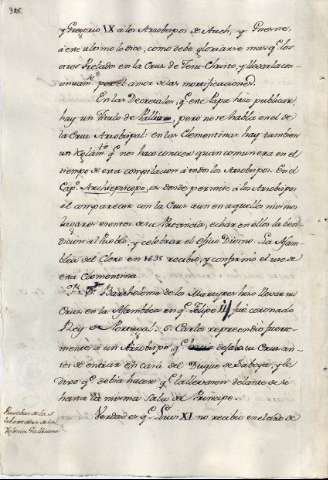 386.
y Gregorio IX a los Arzobispos de Auch, y
a este ultimo le dice, como debe gloriarse mas q.e los
otros Prelados en la Cruz de Jesu-Christo, y llevarla con-
por el amor de las mortificaciones.
En las Decretales, q.e este Papa hizo publicar
hay un titulo de Pallium, pero no se habla en el de
la Cruz Arzobispal: en las Clementinas hay tambien
un q.e nos hace conocer quan comun era en el
tiempo de esta compilacion a todos los Arzobispos. En el
Cap. Archiepiscopo, en donde permite a los Arzobispos
el comparecer con la Cruz aun en aquellos mismos
lugares exentos de su Provincia, echar en ellos la ben-
dicion al Pueblo, y celebrar el Oficio Divino. La Asam-
blea del Clero en 1635 recibio, y confirmó el uso de
esta Clementina.
D.n Fr. Bartholome de los Martyres hizo llevar su
Cruz en la Asamblea en q.e Felipe II fue coronado
Rey de Portugal. S. Carlos reprendio fuerte-
mente a un Arzobispo q.e dejaba su Cruz an-
tes de entrar en casa del Duque de Saboya, y le
dixo q.e debia hacer q.e la llevaron delante de se
hasta la misma Sala del Principe.
Verdad es q.e Luis XI no recibio en el año de